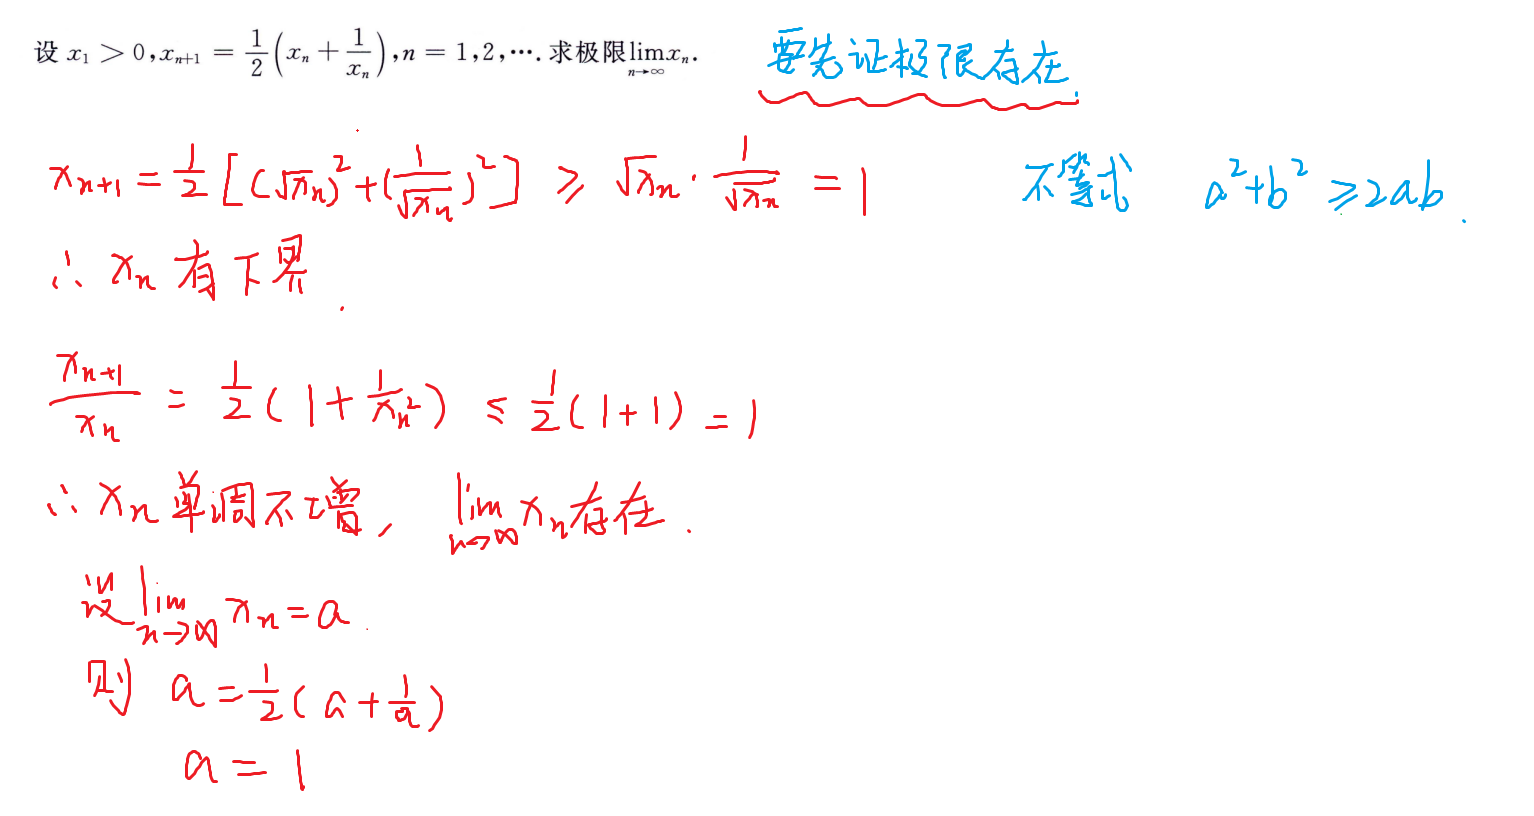 设 x₁ > 0, xₙ₊₁ = 1/2 (xₙ + 1/xₙ), n = 1,2,⋯. 求极限 lim_{n→∞} xₙ.
要先证极限存在.
xₙ₊₁ = 1/2 [(√xₙ)² + (1/√xₙ)²] ⩾ √xₙ · 1/√xₙ = 1
不等式 a²+b² ⩾ 2ab.
∴ xₙ 有下界.
xₙ₊₁/xₙ = 1/2 (1 + 1/xₙ²) ≤ 1/2 (1+1) = 1
∴ xₙ 单调不增, lim_{n→∞} xₙ 存在.
设 lim_{n→∞} xₙ = a.
则 a = 1/2 (a + 1/a)
a = 1